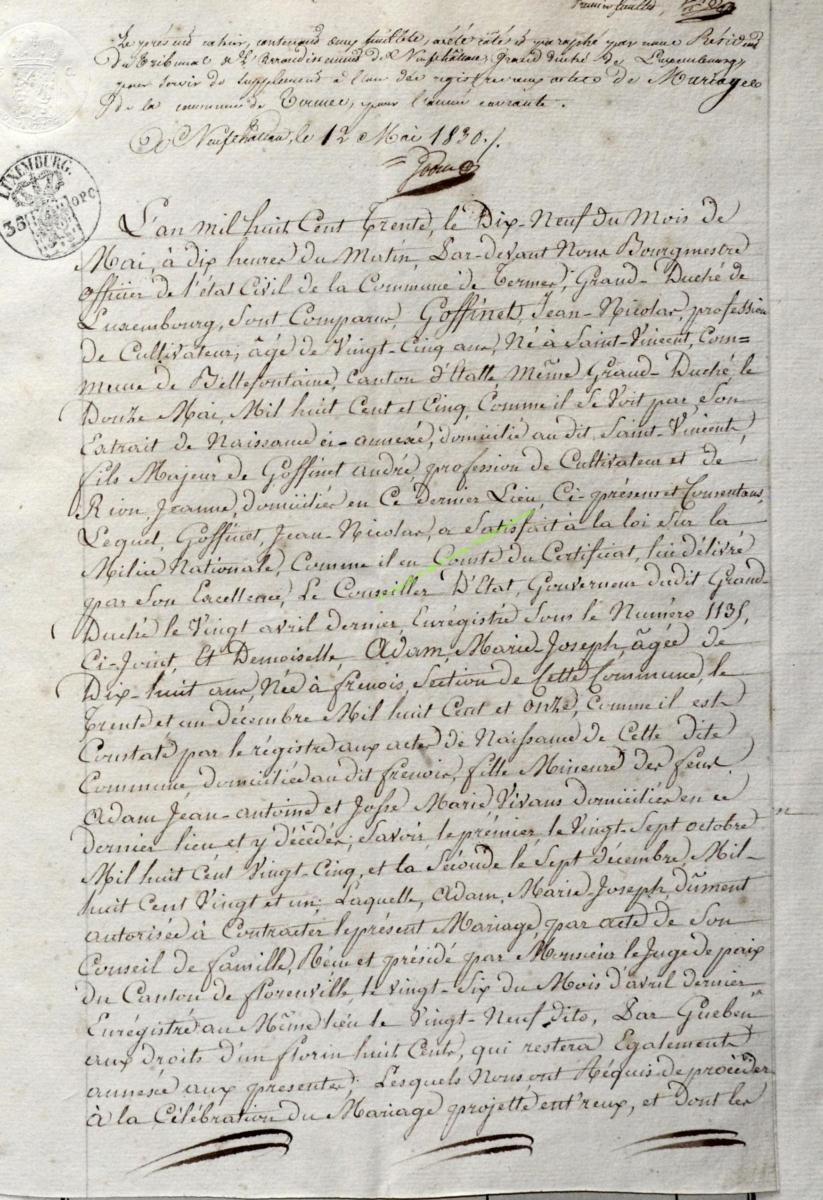 Premier feuillet,
Le présent cahier, contenant cinq feuillets, a été côté et paraphé par nous Président
du Tribunal de l'arrondissement de Neufchâteau, Grand duché de Luxembourg,
pour servir de Supplément à l'un des registres aux actes de Mariages
de la commune de Termes, pour l'année courante.
Neufchâteau, le 12 Mai 1830.
LUXEMBURG.
35 OPC
L'an mil huit Cent Trente, le Dix-Neuf du Mois de
Mai, à dix heures du Matin, Par-devant Nous Bourgmestre
officier de l'état Civil de la Commune de Termes, Grand-Duché de
Luxembourg, Sont Comparus, Goffinet, Jean-Nicolas, profession
de Cultivateur, âgé de Vingt-Cinq ans, Né à Saint-Vincent, Com=
mune de Bellefontaine, Canton d'Etalle, Même Grand-Duché, le
Douze Mai, Mil huit Cent et Cinq, Comme il Se Voit par Son
Extrait de Naissance ci-annexé, domicilié au dit Saint-Vincent,
fils Majeur de Goffinet André, profession de Cultivateur et de
Rion Jeanne, domiciliés en Ce dernier Lieu, Ci-présens et Consentans,
Lequel, Goffinet, Jean-Nicolas, a Satisfait à la loi Sur la
Milice Nationale, Comme il en Conste du Certificat, lui délivré
par Son Excellence, Le Conseiller D'Etat, Gouverneur dudit Grand-
Duché le Vingt avril dernier Enrégistré Sous le Numéro 1135,
Ci-Joint, Et Demoiselle Adam, Marie-Joseph, âgée de
Dix-huit ans, Née à frenois, Section de Cette Commune, le
Trente et un décembre Mil huit Cent et onze, Comme il est
Constaté par le régistre aux actes de Naissance de Cette dite
Commune, domiciliée au dit frenois, fille Mineure des feux
Adam Jean-antoine et Josse Marie Vivans domiciliés en ce
dernier lieu et y décédés, Savoir, le prémier, le Vingt-Sept octobre
Mil huit Cent Vingt-Cinq, et la Séconde le Sept décembre, Mil-
huit Cent Vingt et un; Laquelle, Adam, Marie-Joseph, dûment
autorisée à Contracter le présent Mariage, par acte de Son
Conseil de famille, Réuni et présidé par Monsieur le Juge de paix
du Canton de florenville, le vingt-Six du Mois d'avril dernier
Enrégistré au Même lieu le Vingt-Neuf dito, Par Gueben
aux Droits d'un florin huit Cents, qui restera Egalement
annexée aux presentes; Lesquels Nous ont Réquis de procéder
à la Célébration du Mariage projetté entr'eux, et Dont les